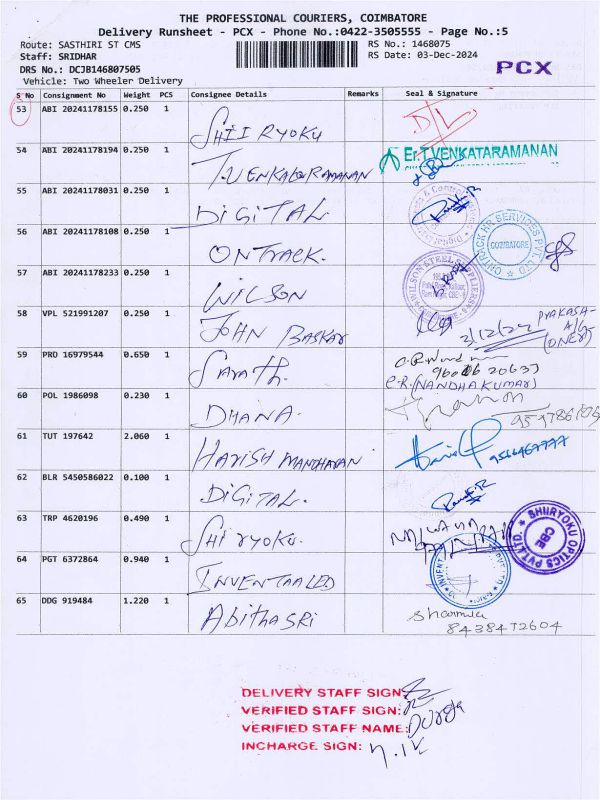 THE PROFESSIONAL COURIERS, COIMBATORE
Delivery Runsheet - PCX - Phone No.:0422-3505555 - Page No.:5
Route: SASTHIRI ST CMS
RS No.: 1468075
Staff: SRIDHAR
RS Date: 03-Dec-2024
DRS No.: DCJB146807505
Vehicle: Two Wheeler Delivery
PCX
S No Consignment No Weight PCS Consignee Details Remarks Seal & Signature
53 ABI 20241178155 0.250 1 SHIIRYOKU D/L
54 ABI 20241178194 0.250 1 T.VENKATARAMANAN Er.T.VENKATARAMANAN
55 ABI 20241178031 0.250 1 DIGITAL
56 ABI 20241178108 0.250 1 ONTRACK. CHITLOCK HR SERVICES PVT. LTD COIMBATORE
57 ABI 20241178233 0.250 1 WILSON WILSON STEEL SUPPLIERS
58 VPL 521991207 0.250 1 JOHN BASKAR 3/12/24 PRAKASA-
59 PRO 16979544 0.650 1 Sarath. 96006 20637
C.R.(NANDHAKUMAR)
60 POL 1986098 0.230 1 DHANA.
61 TUT 197642 2.060 1 HARISH MANOHARAN 9566467777
62 BLR 5450586022 0.100 1 DIGITAL.
63 TRP 4620196 0.490 1 SHIRYOKU. SHIIRYOKU OPTICS PVT.LTD. CBE
64 PGT 6372864 0.940 1 INVENTAALED
65 DDG 919484 1.220 1 ABITHASRI Sharmila
8438472604
DELIVERY STAFF SIGN:
VERIFIED STAFF SIGN:
VERIFIED STAFF NAME: Durga
INCHARGE SIGN: